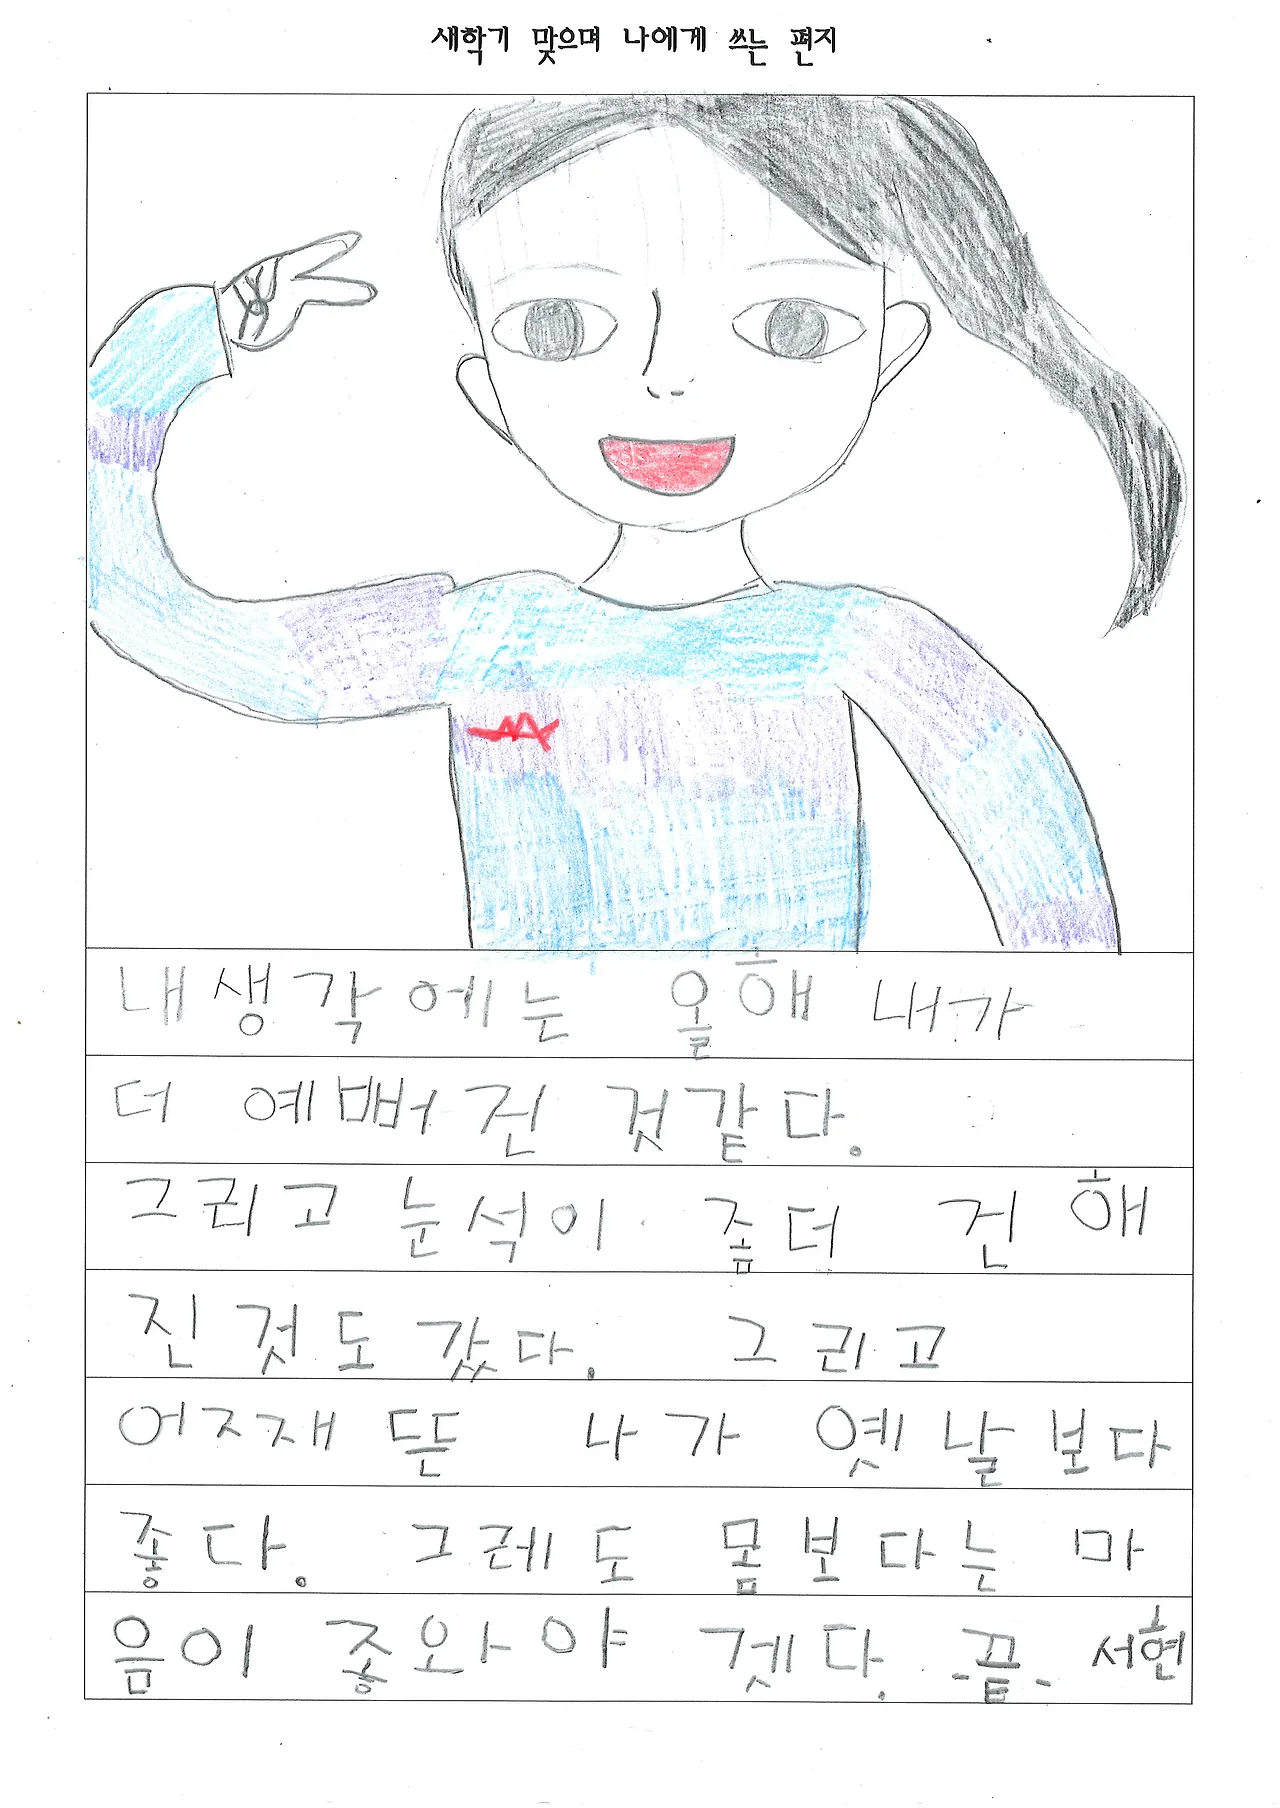 새학기 맞으며 나에게 쓰는 편지
내생각에는 올해 내가
더 예뻐진 것같다.
그리고 눈석이 좀더 건해
진것도 갔다. 그리고
어즈재뜬 나가 옛날보다
좋다. 그레도 몸보다는 마
음이 좋와야 겟다. -끝- 서현